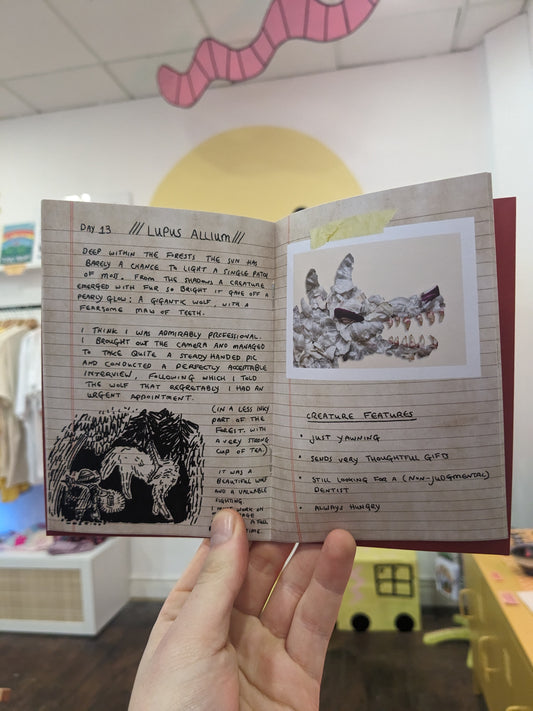 DAY 13 /// LUPUS ALLIUM ///
DEEP WITHIN THE FORESTS THE SUN HAS
BARELY A CHANCE TO LIGHT A SINGLE PATCH
OF MOSS. FROM THE SHADOWS A CREATURE
EMERGED WITH FUR SO BRIGHT IT GAVE OFF A
PEARLY GLOW: A GIGANTIC WOLF, WITH A
FEARSOME MAW OF TEETH.
I THINK I WAS ADMIRABLY PROFESSIONAL.
I BROUGHT OUT THE CAMERA AND MANAGED
TO TAKE QUITE A STEADY HANDED PIC
AND CONDUCTED A PERFECTLY ACCEPTABLE
INTERVIEW, FOLLOWING WHICH I TOLD
THE WOLF THAT REGRETABLY I HAD AN
URGENT APPOINTMENT.
(IN A LESS INKY
PART OF THE
FOREST. WITH
A VERY STRONG
CUP OF TEA)
IT WAS A
BEAUTIFUL WOLF
AND A VALUABLE
SIGHTING.
I MUST WORK ON
A FULL
TIME.
CREATURE FEATURES
• JUST YAWNING
• SENDS VERY THOUGHTFUL GIFTS
• STILL LOOKING FOR A (NON-JUDGMENTAL)
DENTIST
• ALWAYS HUNGRY